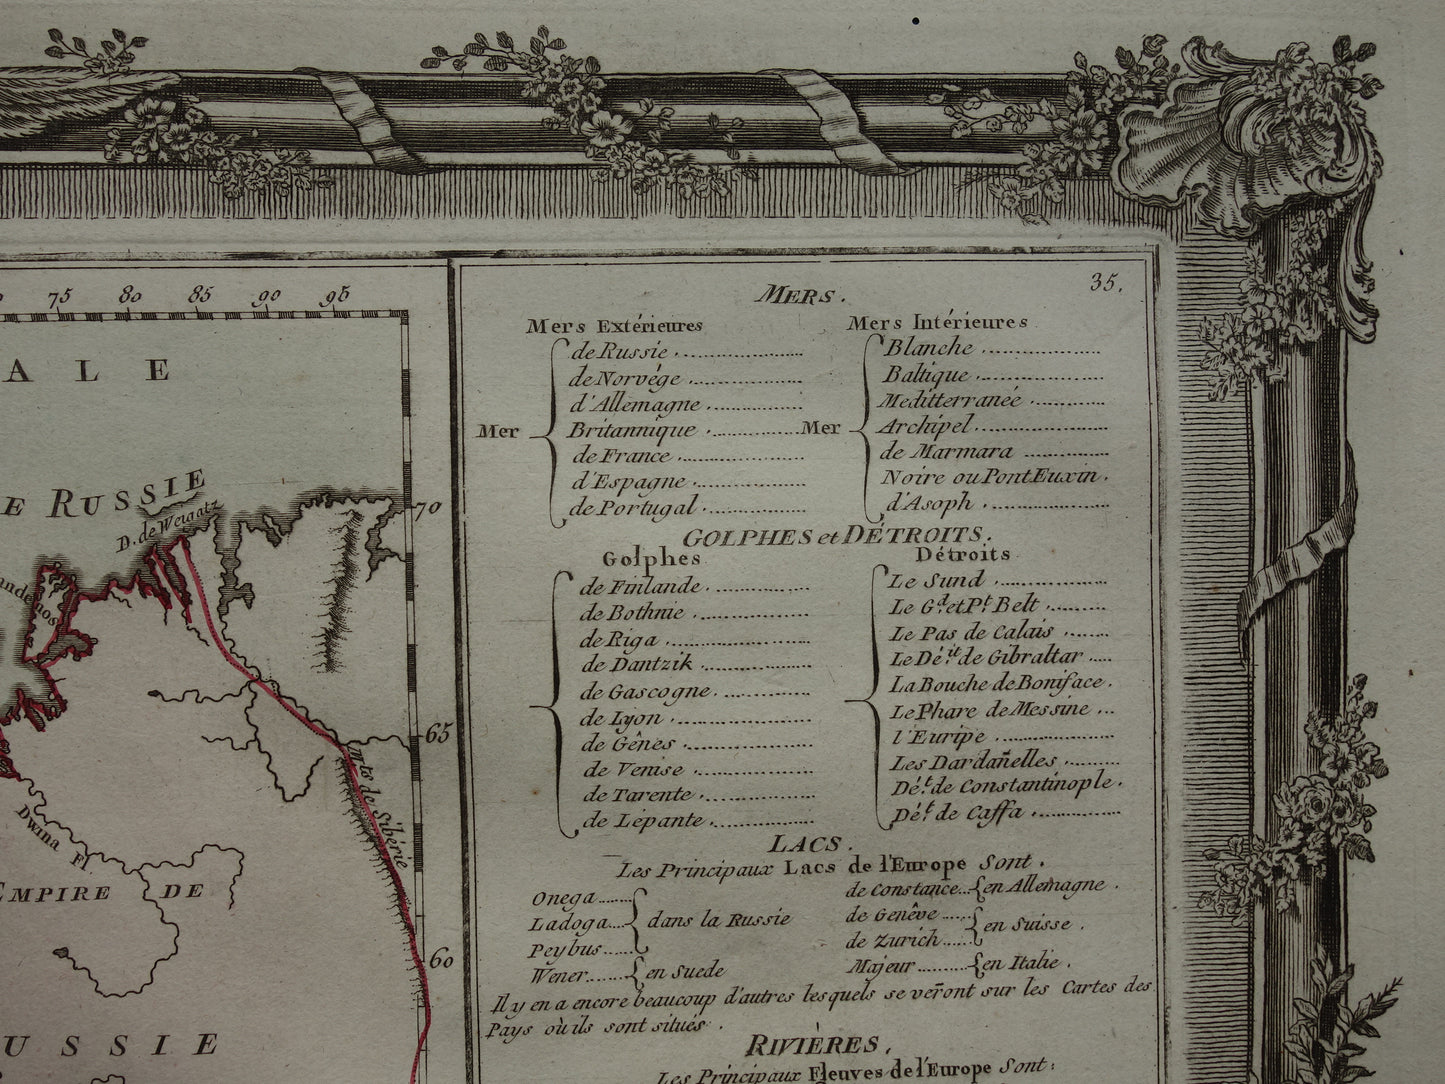 75 80 85 90 95
ALE
E RUSSIE
D. de Weigatz
70
65
Mts de Sibérie
Dwina Fl.
EMPIRE DE
60
USSIE
35.
MERS.
Mers Extérieures
Mer
de Russie
de Norvége
d'Allemagne
Britannique
de France
d'Espagne
de Portugal
Mers Intérieures
Mer
Blanche
Baltique
Meditterraneé
Archipel
de Marmara
Noire ou Pont Euxin.
d'Asoph
GOLPHES et DÉTROITS.
Golphes
de Finlande
de Bothnie
de Riga
de Dantzik
de Gascogne
de Lyon
de Gênes
de Venise
de Tarente
de Lépante
Détroits
Le Sund
Le Gd. et Pt. Belt
Le Pas de Calais
Le Déit. de Gibraltar
La Bouche de Boniface.
Le Phare de Messine
l'Euripe
Les Dardañelles
Dét. de Constantinople.
Dét. de Caffa
LACS.
Les Principaux Lacs de l'Europe Sont.
Onega
Ladoga
Peybus
dans la Russie
Wener en Suede
de Constance en Allemagne.
de Genêve
de Zurich
en Suisse.
Majeur en Italie.
Il y en a encore beaucoup d'autres lesquels se veront sur les Cartes des
Pays où ils sont situés.
RIVIÈRES.
Les Principaux Fleuves de l'Europe Sont: